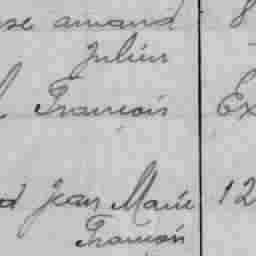 se amand 8
Julien
l François Ex
d Jean Marie 12
François